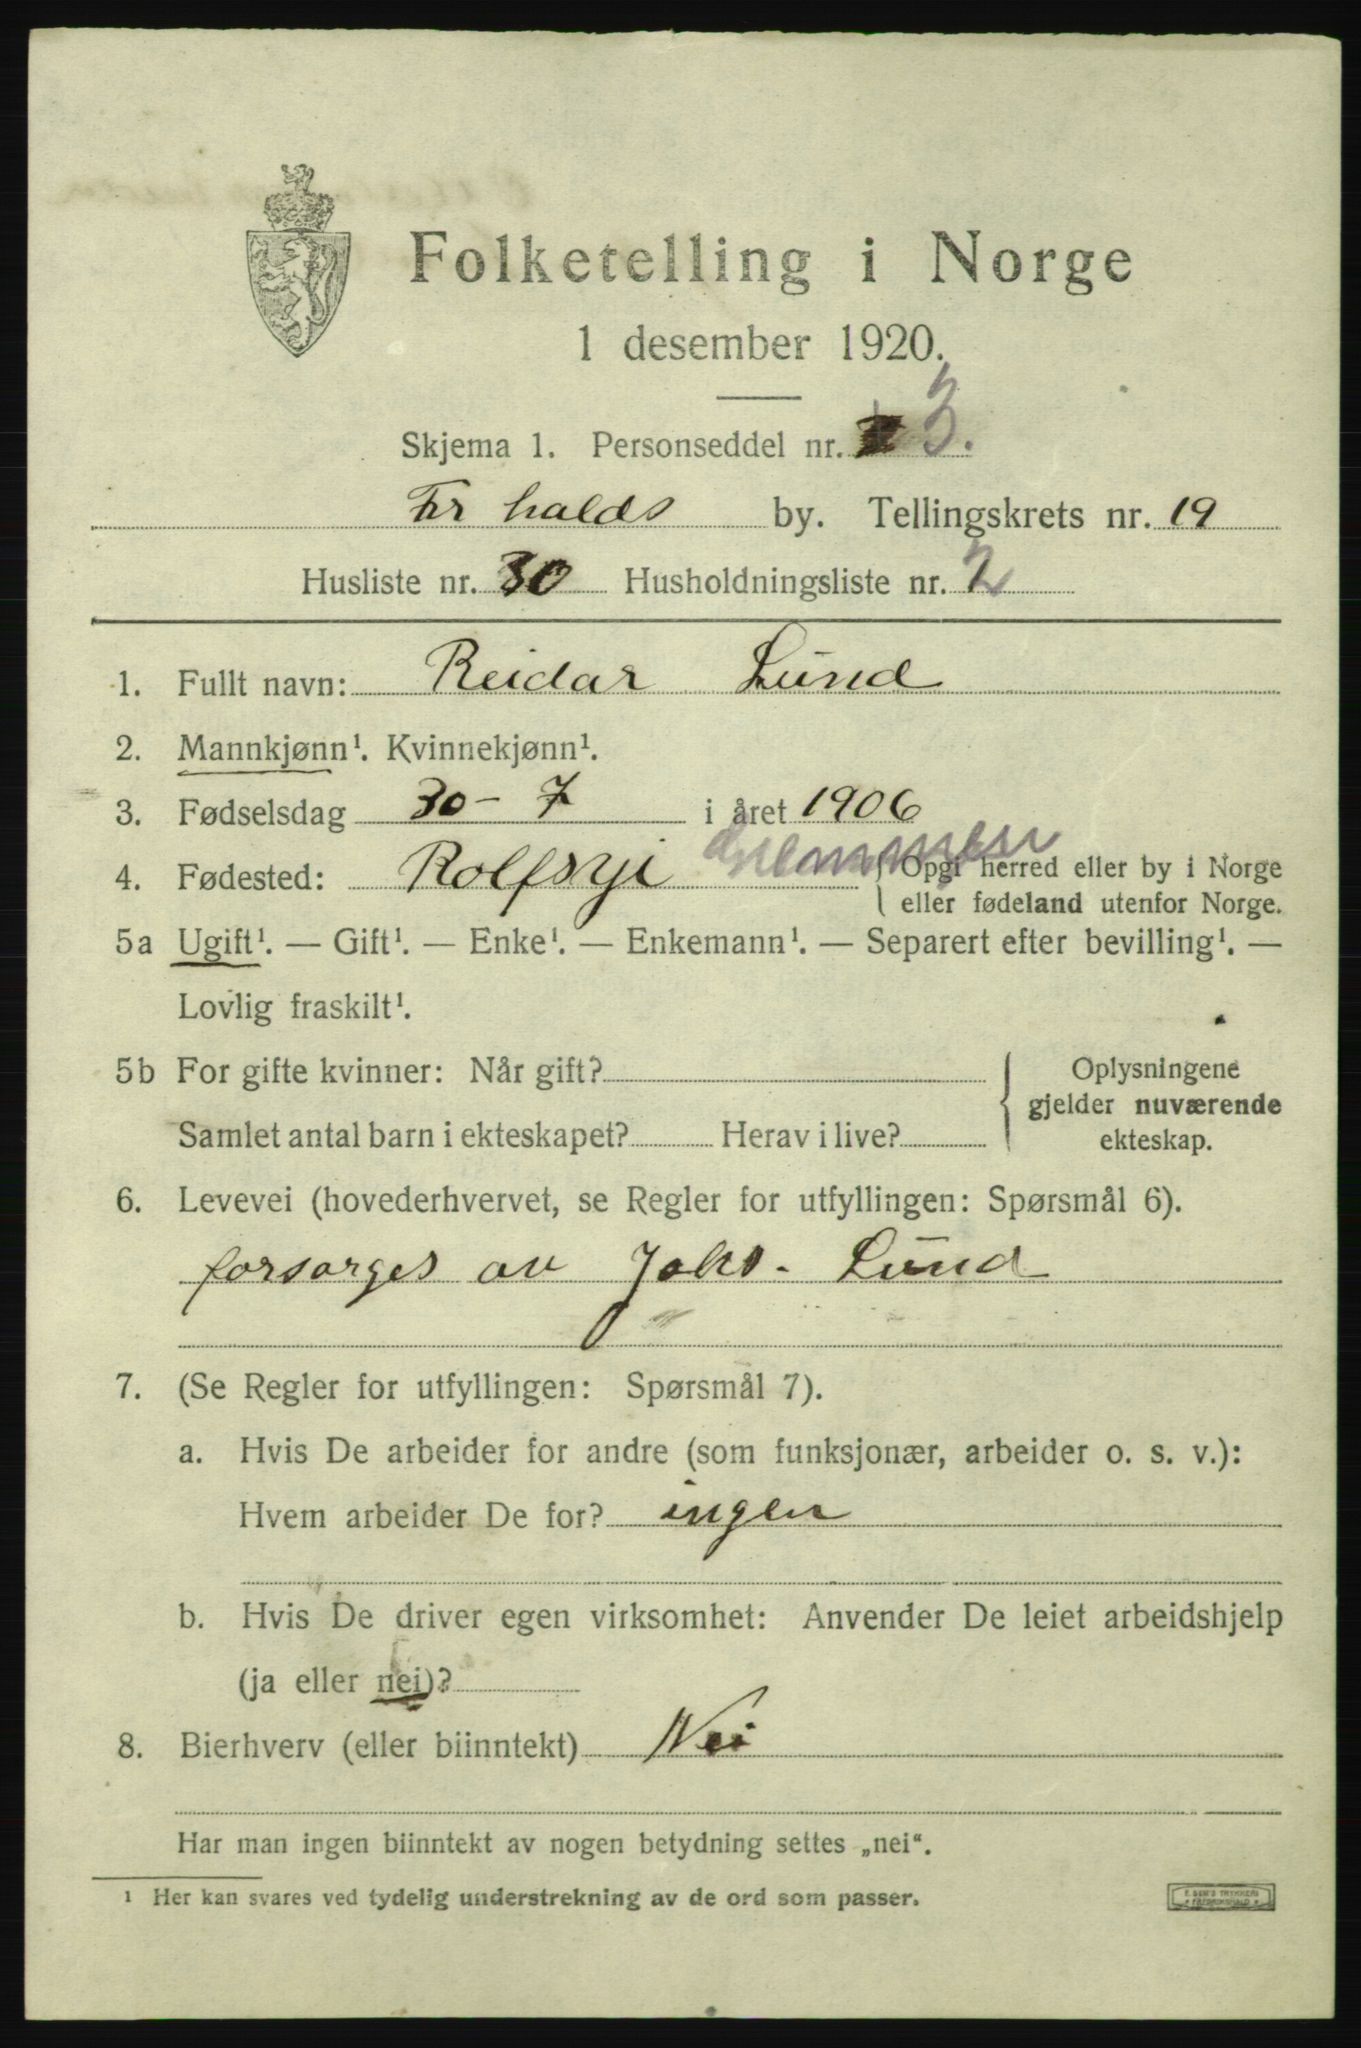 Folketelling i Norge
1 desember 1920.
Skjema 1. Personseddel nr. 3.
Fr halds by. Tellingskrets nr. 19
Husliste nr. 30 Husholdningsliste nr. 2
1. Fullt navn: Reidar Lund
2. Mannkjønn¹. Kvinnekjønn¹.
3. Fødselsdag 30-7 i året 1906
4. Fødested: Rolfsyi { Opgi herred eller by i Norge
eller fødeland utenfor Norge.
5a Ugift¹. — Gift¹. — Enke¹. — Enkemann¹. — Separert efter bevilling¹. —
Lovlig fraskilt¹.
5b For gifte kvinner: Når gift? { Oplysningene
gjelder nuværende
Samlet antal barn i ekteskapet? Herav i live?
ekteskap.
6. Levevei (hovederhvervet, se Regler for utfyllingen: Spørsmål 6).
forsørges av Johs. Lund
7. (Se Regler for utfyllingen: Spørsmål 7).
a. Hvis De arbeider for andre (som funksjonær, arbeider o. s. v.):
Hvem arbeider De for? ingen
b. Hvis De driver egen virksomhet: Anvender De leiet arbeidshjelp
(ja eller nei)?
8. Bierhverv (eller biinntekt) Nei
Har man ingen biinntekt av nogen betydning settes „nei“.
¹ Her kan svares ved tydelig understrekning av de ord som passer.